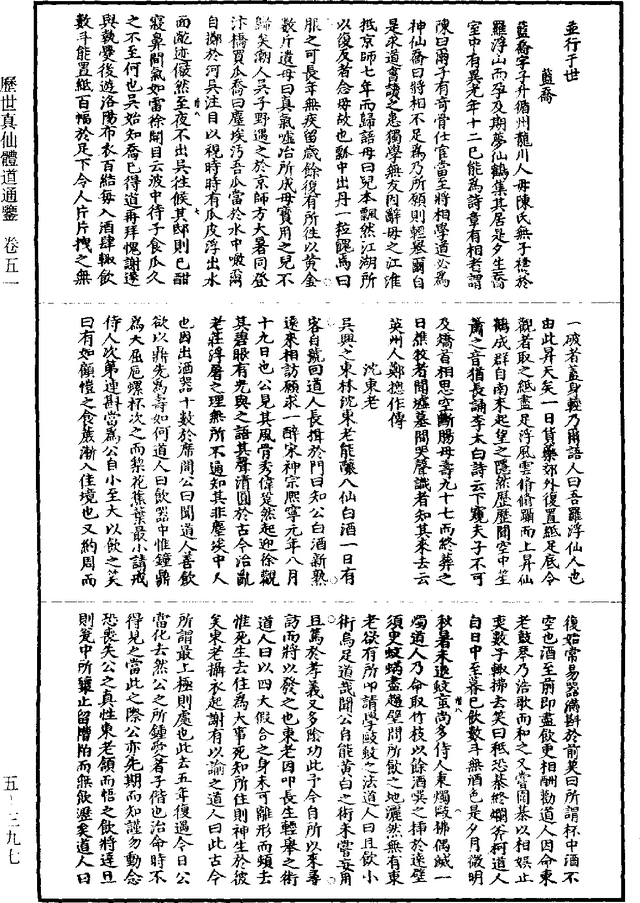 並行于世
藍喬
藍喬字子升循州龍川人母陳氏無子禱於
羅浮山而孕及期夢仙鶴集其居是夕生喬
室中有異光年十二已能為詩章有相者謂
陳曰爾子有奇骨仕官當至將相學道必為
神仙喬曰將相不足為乃所願則輕舉爾自
是求道書讀之患獨學無友因辭母之江淮
抵京師七年而歸語母曰兒本飄然江湖所
以復反者念母故也瓢中出丹一粒餽焉曰
服之可長年無疾留歲餘復有所往以黃金
數斤遺母曰真氣噓冶所成母寶用之兒不
歸矣潮人吳子野遇之於京師方大暑同登
汴橋買瓜喬曰塵埃汚吾瓜當於水中噉爾
自擲於河吳注目以視時時有瓜皮浮出水
面齕迹儼然至夜不出吳往候其邸則已酣
寢鼻間氣如雷徐開目云波中待子食瓜久
之不至何也吳始知喬已得道再拜愧謝遂
與執爨後遊洛陽布衣百結每入酒肆輒飲
數斗能置紙百幅於足下令人片片拽之無
一破者蓋身輕乃爾語人曰吾羅浮仙人也
由此昇天矣一日貨藥郊外復置紙足底令
觀者取之紙盡足浮風雲翛翛躡而上昇仙
鶴成群自南來起望之隱然歷歷聞空中笙
簫之音猶長誦李太白詩云下窺夫子不可
及矯首相思空斷腸母壽九十七而終葬之
日樵牧者聞墟墓間哭聲識者知其來去云
英州人鄭摠作傳
沈東老
吳興之東林沈東老能釀八仙白酒一日有
客自號回道人長揖於門曰知公白酒新熟
遠來相訪願求一醉宋神宗熙寧元年八月
十九日也公見其風骨秀偉跫然起迎徐觀
其碧眼有光與之語其聲清圓於古今治亂
老莊浮屠之理無所不通知其非塵埃中人
也因出酒器十數於席間曰聞道人善飲
欲以鼎先為壽如何道人曰飲器中惟鐘鼎
為大屈巵螺杯次之而梨花蕉葉最小請戒
侍人次第速斟當為公自小至大以飲之笑
曰有如顧愷之食蔗漸入佳境也又約周而
復始常易器滿斟於前笑曰所謂杯中酒不
空也酒至前即盡飲更相酬勸道人因命東
老鼓琴乃浩歌而和之又嘗圍棊以相娛止
奕數子輒拂去笑曰秖恐棊終爛斧柯道人
自日中至暮已飲數斗無酒色是夕月微明
秋暑未退蚊蚋尚多侍人秉燭毆拂偶滅一
燭道人乃命取竹枝以餘酒噀之插於遠壁
須臾蚊蚋盡趨壁間所飲之地灑然無有東
老欲有所叩請學毆蚊之法道人曰且飲小
術烏足道哉聞公自能黃白之術未嘗妄用
且篤於孝義又多陰功此予今自所以來尋
訪而將以發之也東老因叩長生輕舉之術
道人曰以四大假合之身未可離形而頓去
惟死生去住為大事死知所住則神生於彼
矣東老攝衣起謝有以諭之道人曰此古今
所謂最上極則處也此去五年復遇今日公
當化去然公之所鍾愛者子偕也治命時不
得見之當此之際公亦先期而知謹勿動念
恐喪失公之真性東老頷而悟之飲將達旦
則甕中所釀止留糟粕而無飲瀝矣道人曰
歷世真仙體道通鑒 卷五一
五-三九七